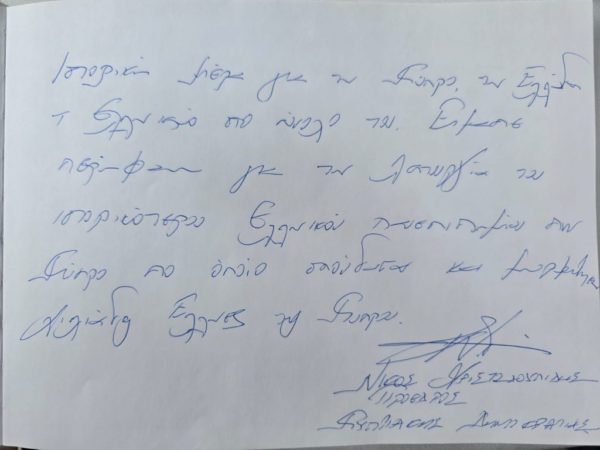 Ιστορική μέρα για την Κύπρο, την Ελλάδα
Ελληνισμό στο σύνολο του. Είμαστε
περήφανοι για την λειτουργία του
ιστορικότερου Ελληνικού πανεπιστημίου στην
Κύπρο στο οποίο σπούδασαν και μορφώθηκαν
χιλιάδες Έλληνες της Κύπρου.
ΝΙΚΟΣ ΧΡΙΣΤΟΔΟΥΛΙΔΗΣ
ΠΡΟΕΔΡΟΣ
ΚΥΠΡΙΑΚΗΣ ΔΗΜΟΚΡΑΤΙΑΣ